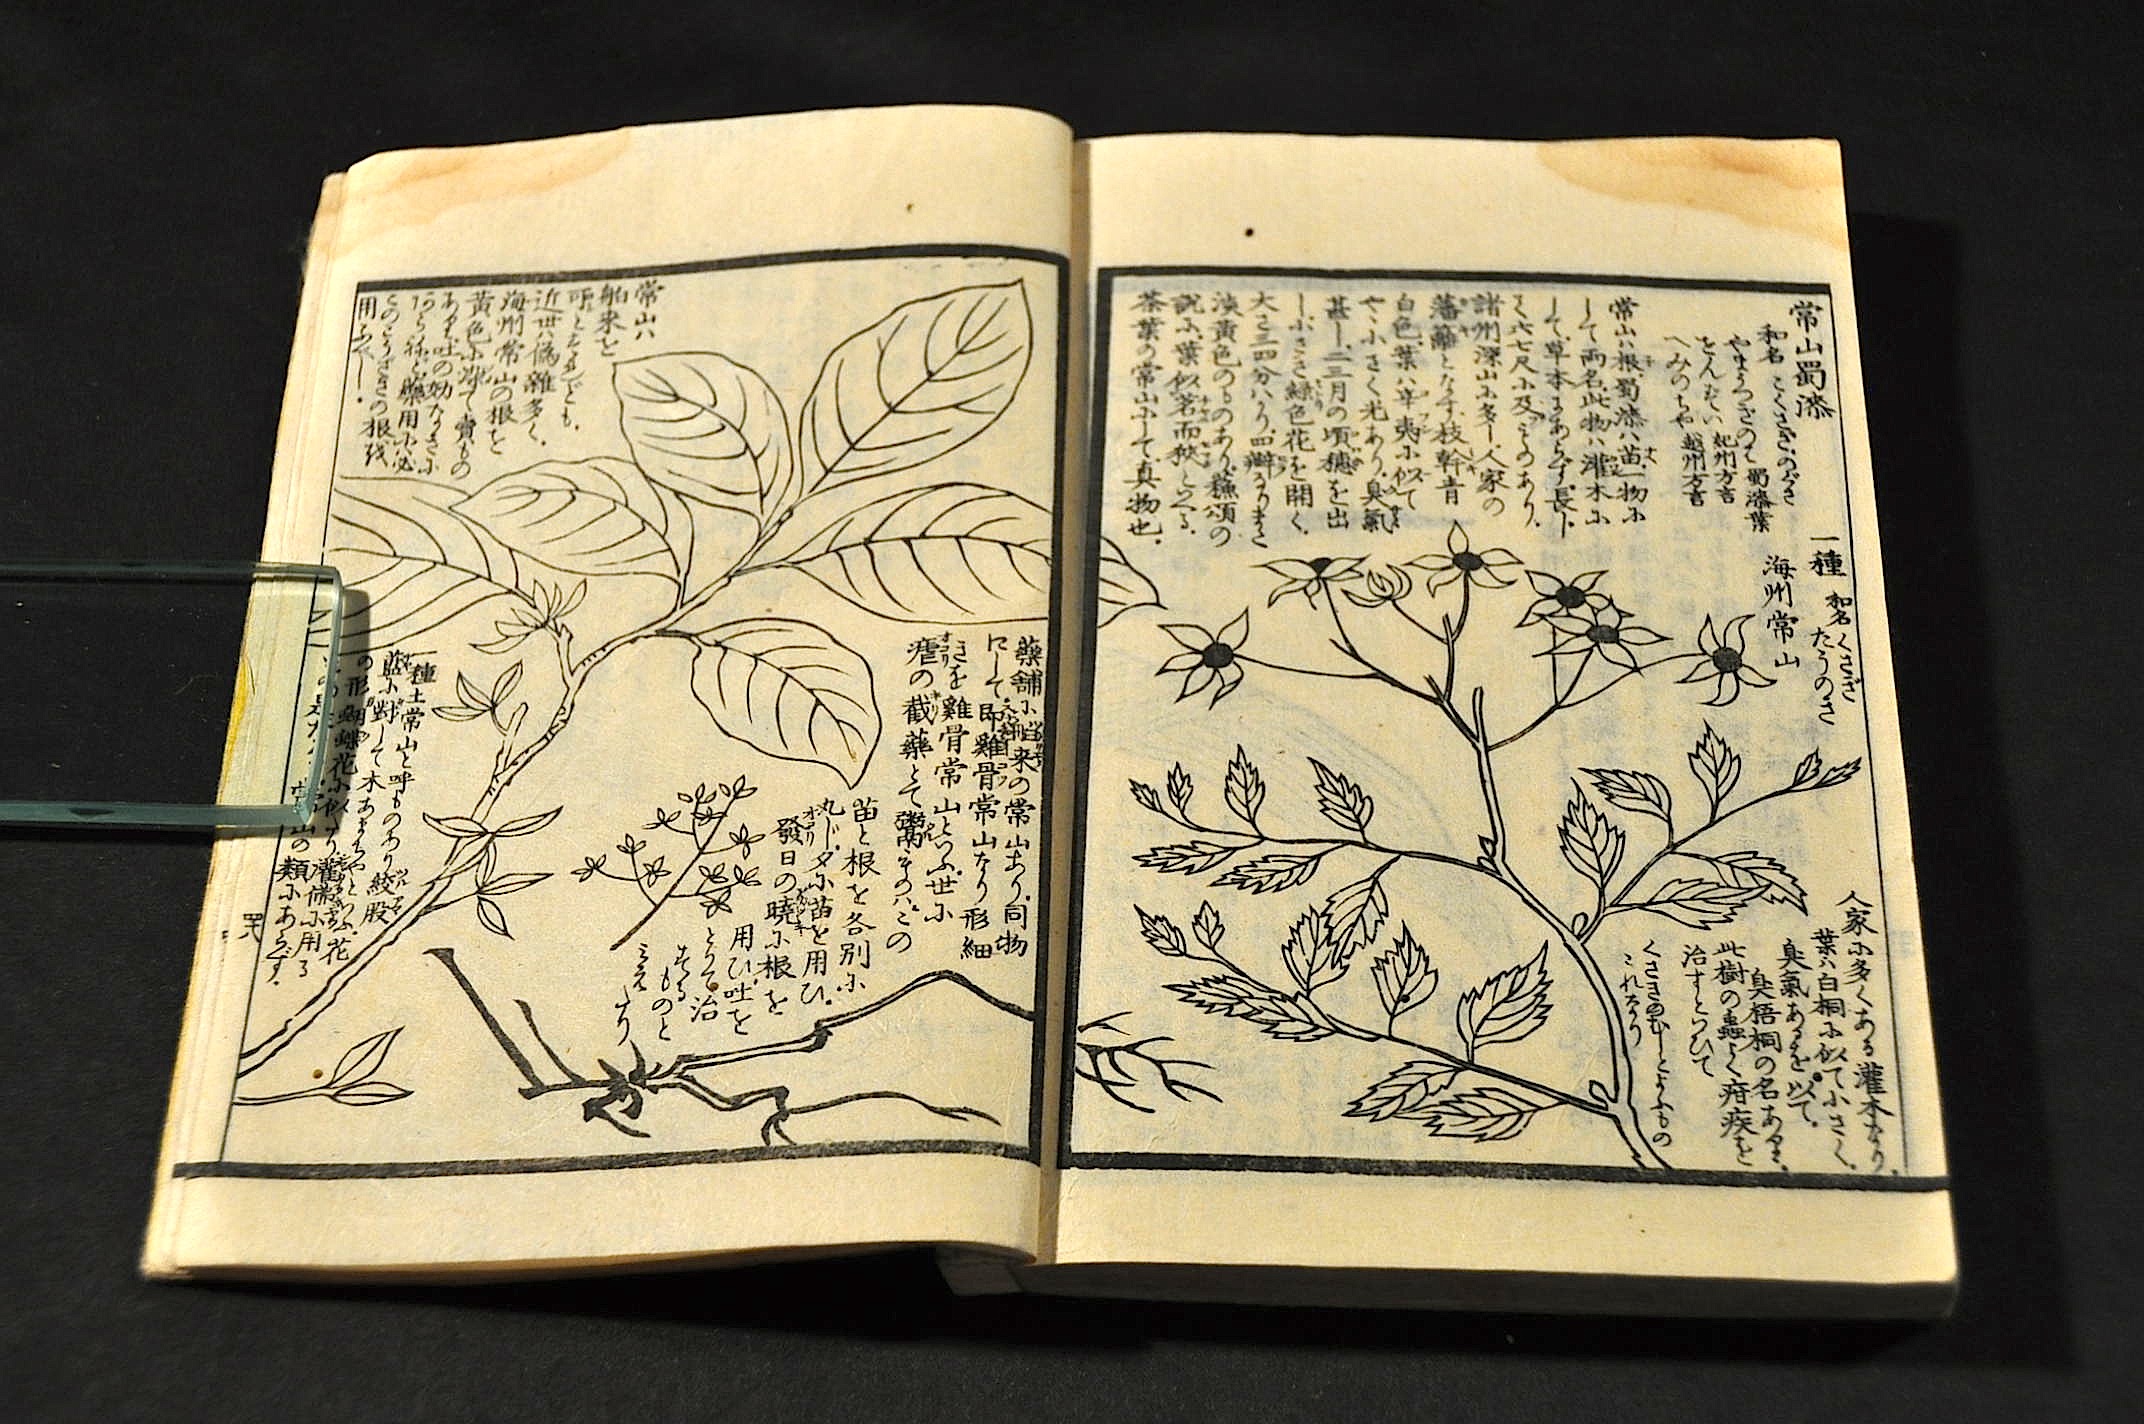 常山蜀漆
和名 こくさぎ のぐさ
やまうつぎのて 蜀漆葉
をんだい 紀州方言
へみのちや 越州方言
常山ハ根、蜀漆ハ苗、一物に
して両名、此物ハ灌木に
して、草本にあらず、長ト
く六七尺に及ぶものあり、
諸州深山に多し、人家の
藩籬となす、枝幹青
白色、葉ハ辛夷に似て
やゝ小さく光あり、臭氣
甚し、二三月の頃穂を出
し、小さき緑色花を開く、
大さ三四分バかり、四瓣なりまた
淡黄色のものあり、蘓頌の
説に、葉似茗而狹といへる、
茶葉の常山にして、真物也、
一種 和名 くさぎ
たうのき
海州常山
人家に多くある灌木なり、
葉ハ白桐に似て小さく、
臭氣あるを以て、
臭梧桐の名あり、
此樹の蟲よく疳疾を
治すといひて
くさきのむしとよふもの
これなり
藥舗に舶来の常山あり、同物
にして、即雞骨常山なり形細
きを雞骨常山といふ、世に
瘧の截藥とて鬻ものハこの
苗と根を各別に
丸じ、夕に苗を用ひ、
發日の曉に根を
用ひ、吐を
とりて治
するものと
みえたり
常山ハ
舶来を
呼となすといへども、
近世ハ偽雜多く、
海州常山の根を
黄色に染て賣もの
あり、吐の効なきに
あらねど、藥用にハ必
このこくさぎの根を
用ふべし、
一種土常山と呼ものあり絞股
藍に對して木あまちやといふ、花
の形蝴蝶花に似たり、灌佛に用る
山の類にあらず、